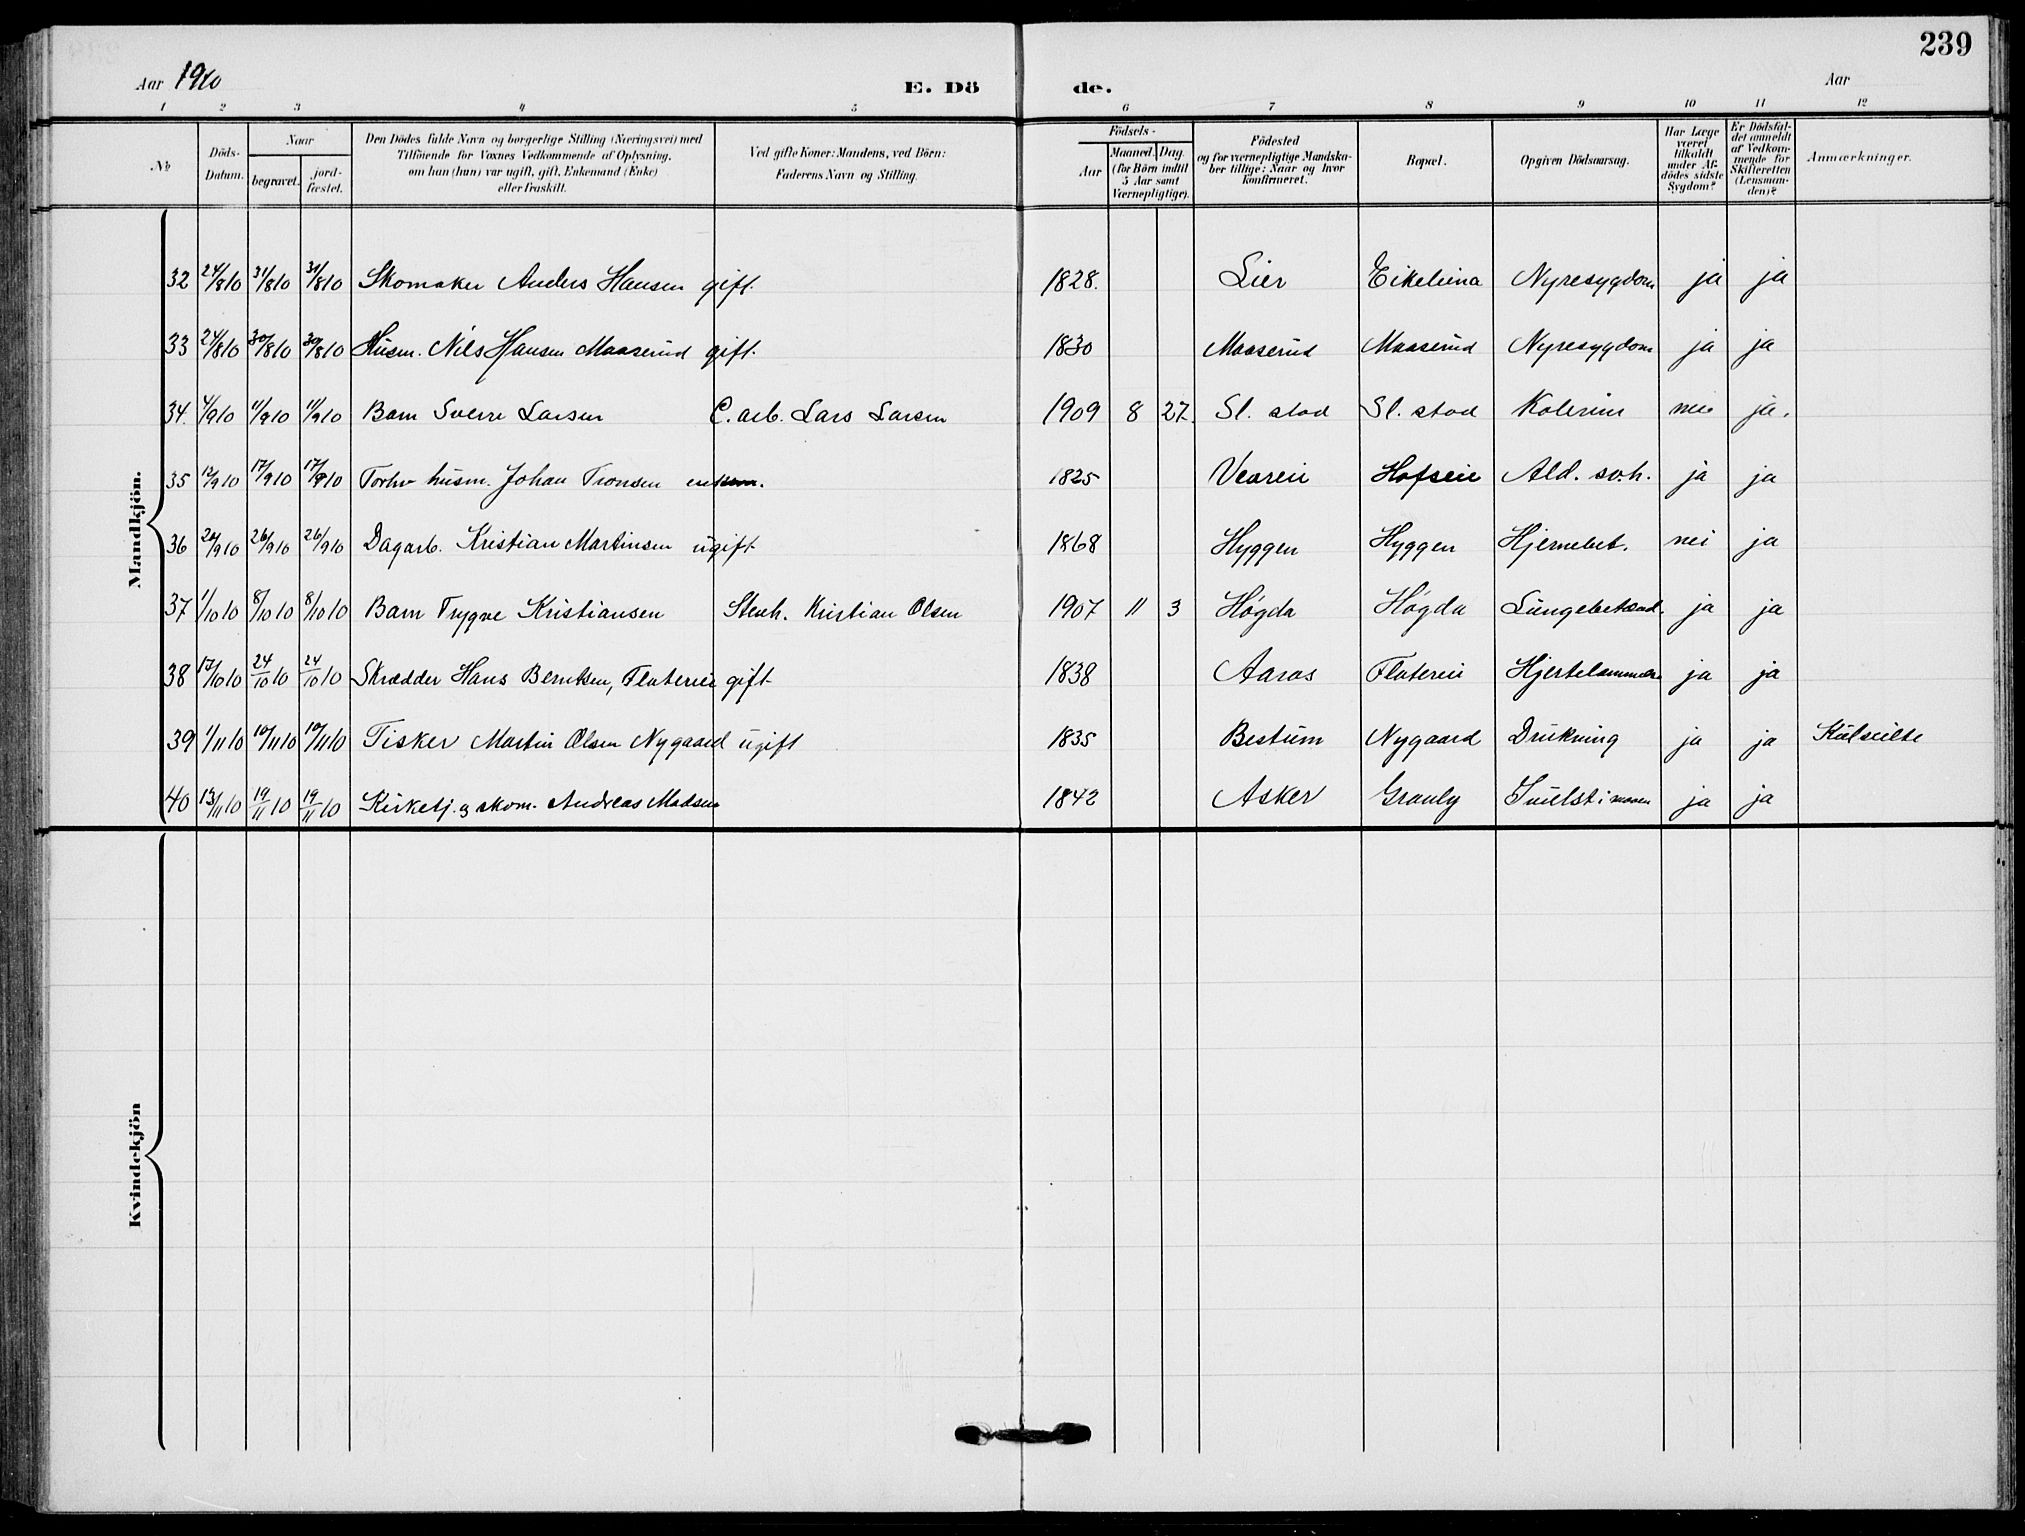 239
Aar 1910
E. Dö
de.
Aar
1 2 3 4 5 6 7 8 9 10 11 12
No
Döds-Datum.
Naar
begravet.
jord-fæstet.
Den Dödes fulde Navn og borgerlige Stilling (Næringsvei) med
Tilföiende for Voxnes Vedkommende af Oplysning,
om han (hun) var ugift, gift, Enkemand (Enke)
eller fraskilt.
Ved gifte Koner: Mandens, ved Börn:
Faderens Navn og Stilling.
Födsels-
Aar
Maaned. Dag.
(for Börn indtil
5 Aar samt
Værnepligtige).
Födested
og for værnepligtige Mandska-
ber tillige: Naar og hvor
konfirmeret.
Bopæl.
Opgiven Dödsaarsag.
Har Læge
været
tilkaldt
under Af-
dödes sidste
Sygdom?
Er Dödsfal-
det anmeldt
af Vedkom-
mende for
Skifteretten
(Lensman-
den)?
Anmærkninger.
Mandkjön.
32 24/8 10 31/8 10 31/8 10 Skomaker Anders Hansen gift. 1828. Lier Eikeliina Nyresygdom ja ja
33 24/8 10 30/8 10 30/8 10 Husm. Nils Hansen Maaserud gift. 1830 Maaserud Maaserud Nyresygdom ja ja
34. 4/9 10 11/9 10 11/9 10 Barn Sverre Larsen C. arb. Lars Larsen 1909 8 27. Sl. stad Sl. stad Kolerine nei ja.
35 12/9 10 17/9 10 17/9 10 Forhv husm. Johan Tronsen enkem. 1825 Veareie Hofseie Ald. svh. ja ja
36 20/9 10 26/9 10 26/9 10 Dagarb. Kristian Martinsen ugift 1868 Hyggen Hyggen Hjernebet. nei ja
37 1/10 10 8/10 10 8/10 10 Barn Trygve Kristiansen Stenh. Kristian Olsen 1907 11 3 Høgda Høgda Lungebetænd. ja ja
38 17/10 10 24/10 10 24/10 10 Skrædder Hans Berntsen, Flatereie gift 1838 Aaros Flatereie Hjertelammelse ja ja
39 1/11 10 10/11 10 10/11 10 Fisker Martin Olsen Nygaard ugift 1835 Bestum Nygaard Drukning ja ja Kulseilte
40 13/11 10 19/11 10 19/11 10 Kirketj. og skom. Andreas Madsen 1842 Asker Granly Svulst i maven ja ja
Kvindekjön